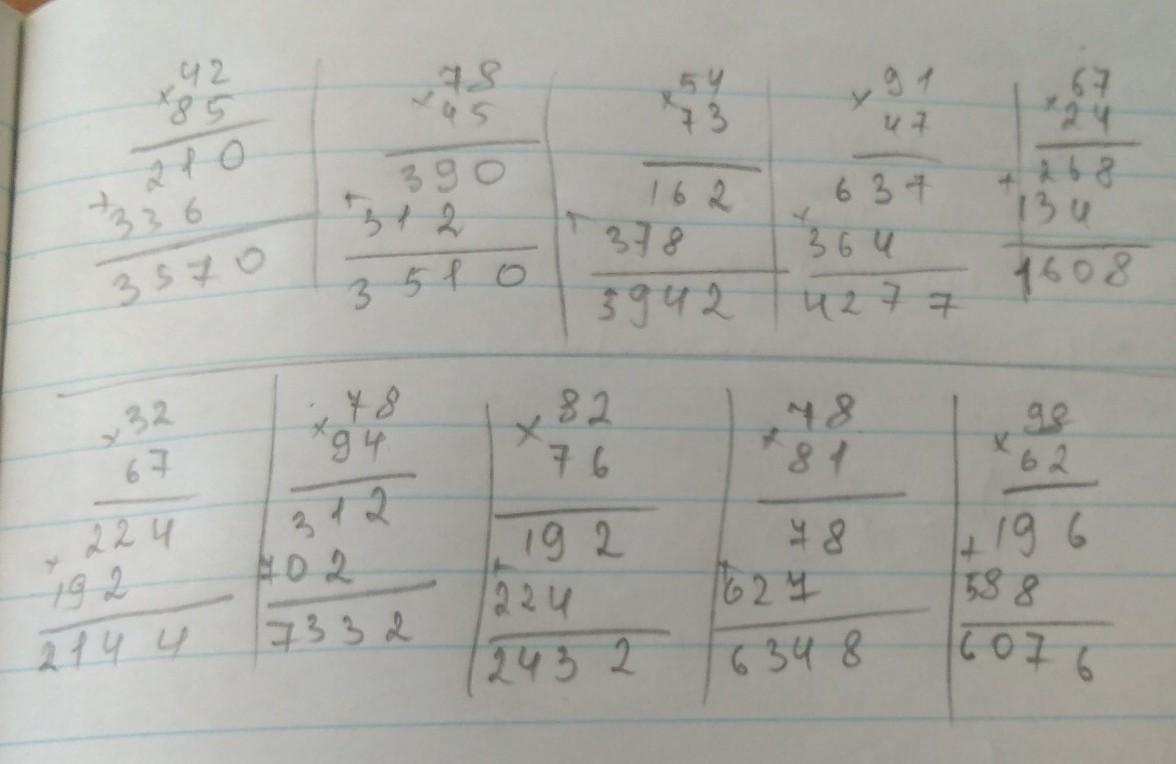 ×42
85
210
+336
3570
×78
45
390
+312
3510
×54
73
162
+378
3942
×91
47
637
×364
4277
×67
24
+268
134
1608
×32
67
224
+192
2144
×78
94
312
702
7332
×82
76
192
+224
2432
×78
81
78
+627
6348
×98
62
+196
588
6076